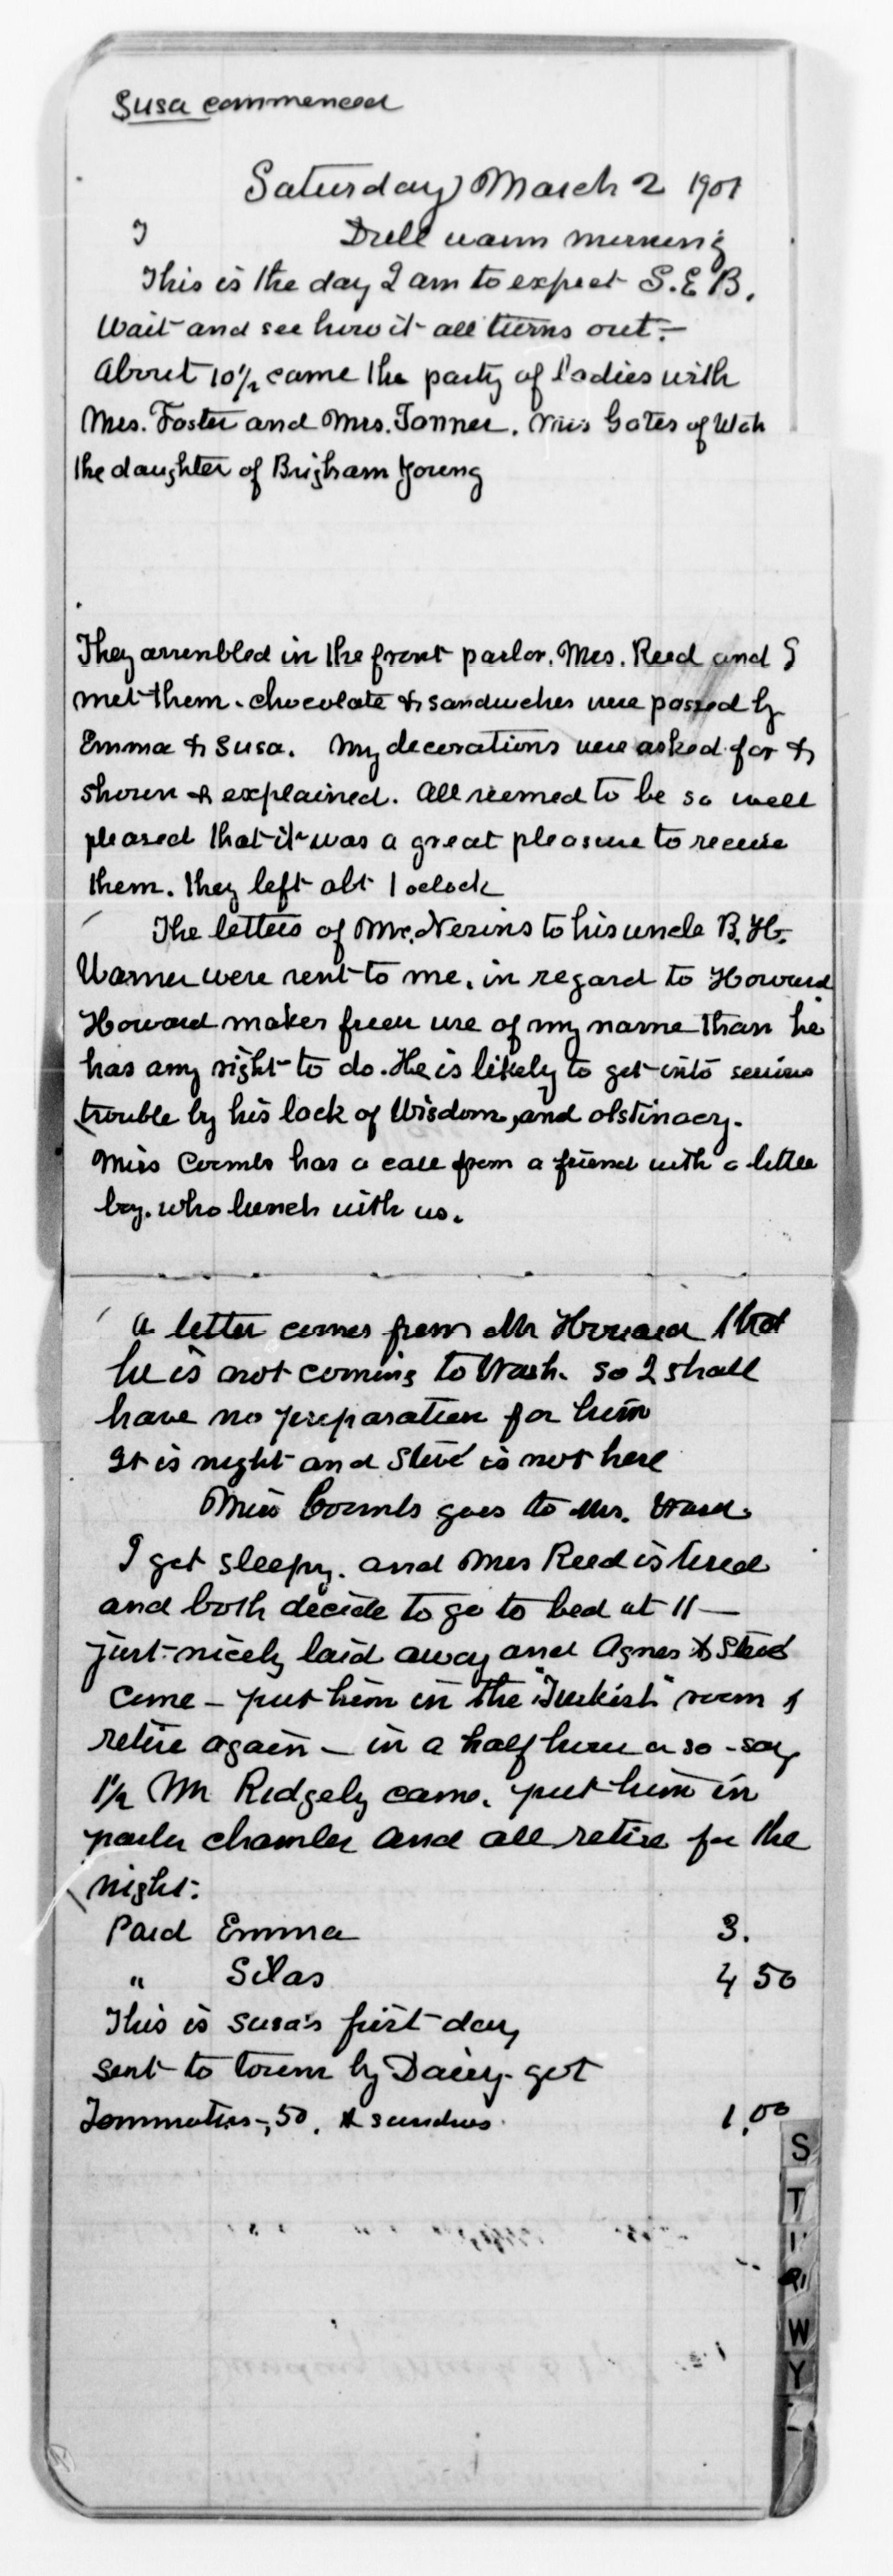 Susa commenced
Saturday March 2 1901
I Dull warm morning
This is the day I am to expect S.E.B.
Wait and see how it all turns out.—
About 10½ came the party of ladies with
Mrs. Foster and Mrs. Tonner. Miss Gates of Utah
the daughter of Brigham Young
They assembled in the front parlor. Mrs. Reed and I
met them. chocolate & sandwiches were passed by
Emma & Susa. My decorations were asked for &
shown & explained. All seemed to be so well
pleased that it was a great pleasure to receive
them. they left abt 1 oclock
The letters of Mr. Nevins to his uncle B. H.
Warner were sent to me, in regard to Howard
Howard makes freer use of my name than he
has any right to do. He is likely to get into serious
trouble by his lack of Wisdom, and obstinacy.
Miss Coombs has a call from a friend with a little
boy. who lunch with us.
A letter comes from Mr Howard that
he is not coming to Wash. so I shall
have no preparation for him
It is night and Steve is not here
Miss Coombs goes to Mrs. Ward.
I get sleepy. and Mrs Reed is tired
and both decide to go to bed at 11 —
just nicely laid away and Agnes & Steve
come — put him in the "Turkish" room &
retire again — in a half hour or so - say
1½ Mr Ridgely came. put him in
parlor chamber and all retire for the
night.
Paid Emma 3.
" Silas 4 50
This is Susa's first day,
sent to town by Daisy- got
Tommatus-,50. & sundries 1.00
S
T
W
Y